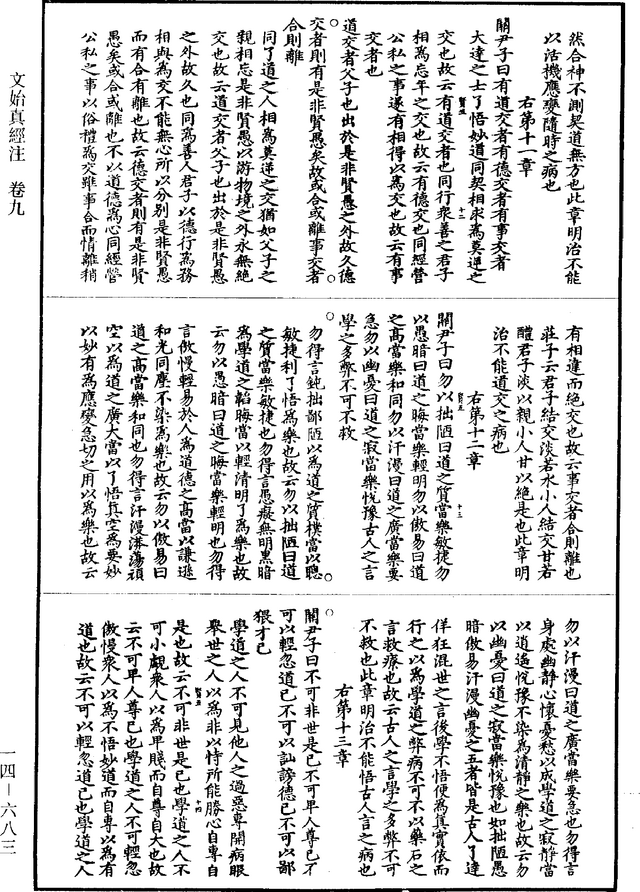 文始真經注　卷九
一四－六八三
然合神不測契道無方也此章明治不能
以活機應變隨時之病也
右第十一章
關尹子曰有道交者有德交者有事交者
大達之士了悟妙道同契相求為莫逆之
交也故云有道交者也同行眾善之君子
相為忘年之交也故云有德交也同經營
公私之事遂有相得以為交也故云有事
交者也
道交者父子也出於是非賢愚之外故久德
交者則有是非賢愚矣故或合或離事交者
合則離
同了道之人相為莫逆之交猶如父子之
親相忘是非賢愚以游物境之外永無絕
交也故云道交者父子也出於是非賢愚
之外故久也同為善人君子以德行為務
相與為交不能無心所以分别是非賢愚
而有合有離也故云德交者則有是非賢
愚矣或合或離也不以道德為心同經營
公私之事以俗禮為交雖事合而情離稍
有相違而絕交也故云事交者合則離也
莊子云君子結交淡若水小人結交甘若
醴君子淡以親小人甘以絕是也此章明
治不能道交之病也
右第十二章
關尹子曰勿以拙陋曰道之質當樂敏捷勿
以愚暗曰道之晦當樂輕明勿以傲易曰道
之高當樂和同勿以汗漫曰道之廣當樂要
急勿以幽憂曰道之寂當樂悅豫古人之言
學之多弊不可不救
勿得言鈍拙鄙陋以為道之質樸當以聰
敏捷利了悟為樂也故云勿以拙陋曰道
之質當樂敏捷也勿得言愚癡無明黑暗
為學道之韜晦當以輕清明了為樂也故
云勿以愚暗曰道之晦當樂輕明也勿得
言傲慢輕易於人為道德之高當以謙遜
和光同塵不染為樂也故云勿以傲易曰
道之高當樂和同也勿得言汗漫漭蕩頑
空以為道之廣大當以了悟真空為要妙
以妙有為應變急切之用以為樂也故云
勿以汗漫曰道之廣當樂要急也勿得言
身處幽靜心懷憂愁以成學道之寂靜當
以逍遙悅豫不染為清靜之樂也故云勿
以幽憂曰道之寂當樂悅豫也如拙陋愚
暗傲易汗漫幽憂之五者皆是古人了達
佯狂混世之言後學不悟便為真實依而
行之以為學道之弊病不可不以藥石之
言救療也故云古人之言學之多弊不可
不救也此章明治不能悟古人言之病也
右第十三章
關尹子曰不可非世是己不可卑人尊己不
可以輕忽道己不可以訕謗德己不可以鄙
猥才己
學道之人不可見他人之過惡專開病眼
舉世之人以為非以恃所能勝心自專自
是也故云不可非世是己也學道之人不
可小覷衆人以為卑賤而自尊自大也故
云不可卑人尊己也學道之人不可輕忽
傲慢衆人以為不悟妙道而自專以為有
道也故云不可以輕忽道己也學道之人